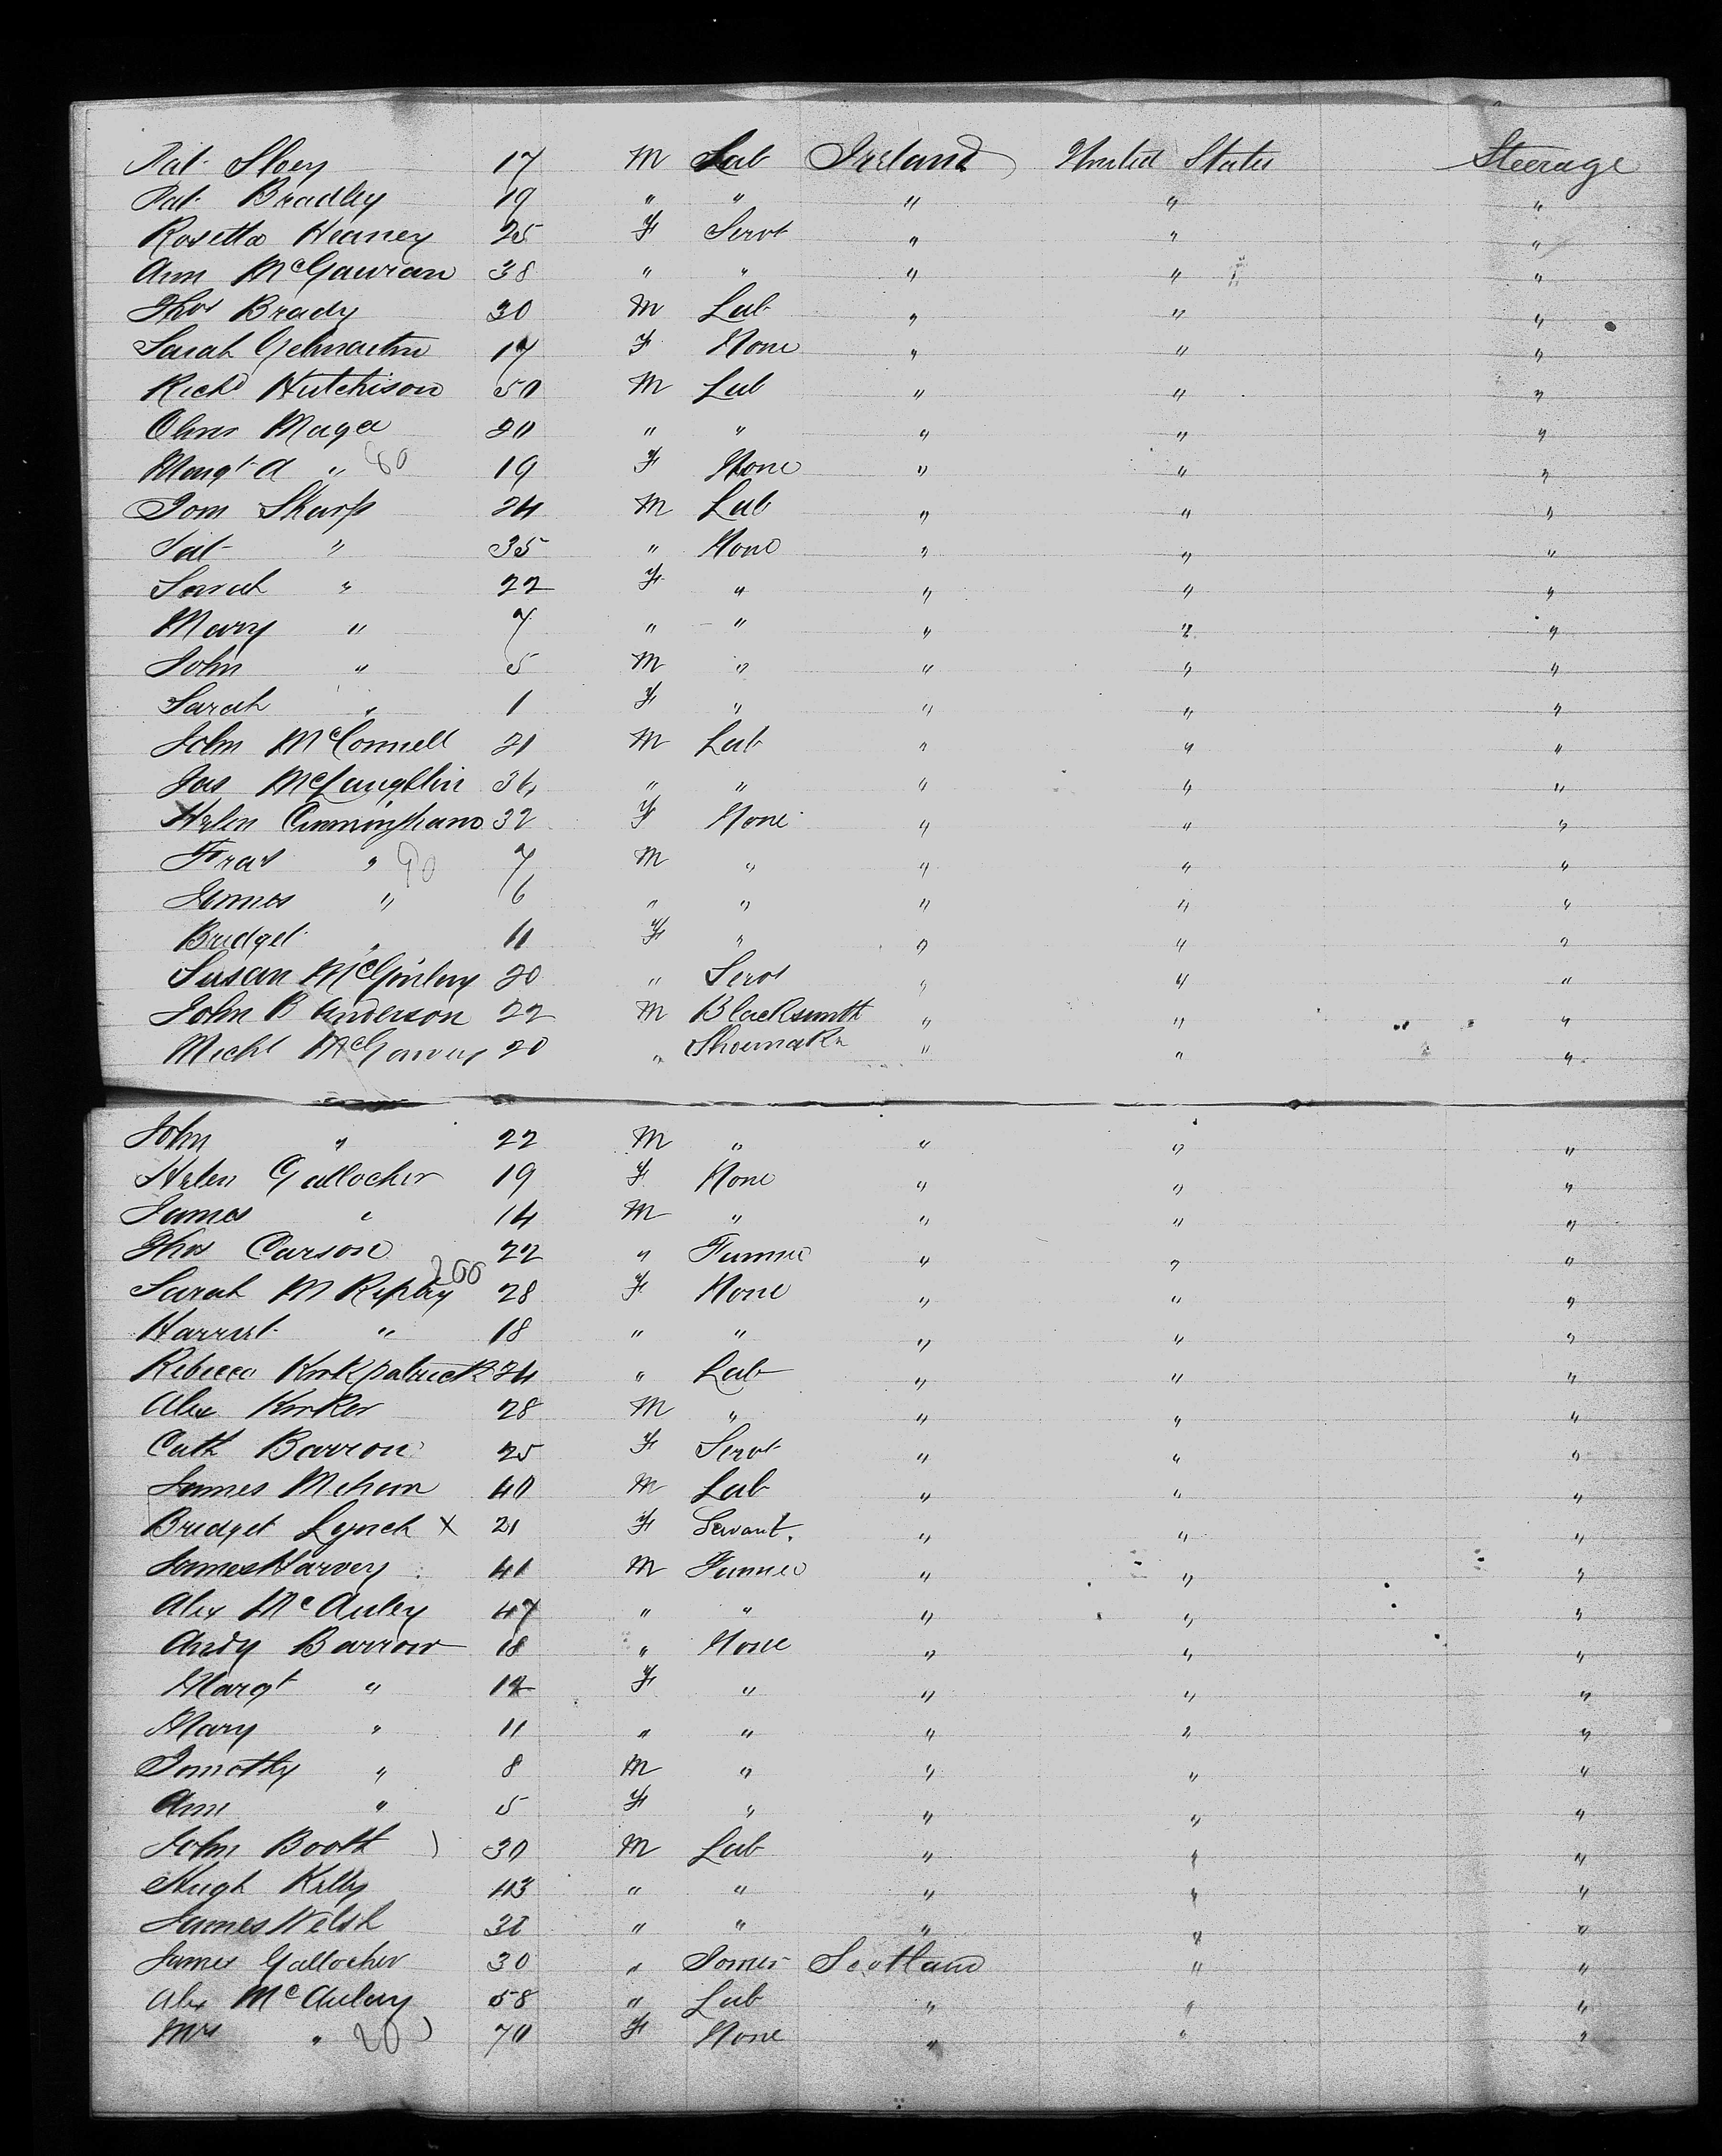 Pat Sloey 17 M Lab Ireland United States Steerage
Pat Bradley 19 " " " " "
Rosetta Heaney 25 F Servt " " "
Ann McGauran 38 " " " " "
Thos Brady 30 M Lab " " "
Sarah Gelmartin 17 F None " " "
Richd Hutchison 50 M Lab " " "
Chas Magee 20 " " " " "
Margt A " 80 19 F None " " "
Tom Sharp 24 M Lab " " "
Pat " 35 " None " " "
Sarah " 22 F " " " "
Mary " 7 " " " " "
John " 5 M " " " "
Sarah " 1 F " " " "
John McConnell 21 M Lab " " "
Jas McLaughlin 36 " " " " "
Helen Cunningham 32 F None " " "
Fras " 90 7 M " " " "
James " 6 " " " " "
Bridget " 11 F " " " "
Susan McGinley 20 " Servt " " "
John B Anderson 22 M Blacksmith " " "
Michl McGarvey 20 " Shoemakr " " "
John " 22 M " " " "
Helen Gallocher 19 F None " " "
James " 14 M " " " "
Thos Carson 22 " Farmer " " "
200
Sarah M Ripley 28 F None " " "
Harriet " 18 " " " " "
Rebecca Kirkpatrick 24 " Lab " " "
Alex Kirker 28 M " " " "
Cath Barron 25 F Servt " " "
James Mehan 40 M Lab " " "
Bridget Lynch X 21 F Servant. " " "
James Harvey 41 M Farmer " " "
Alex McAuley 47 " " " " "
Andy Barrow 18 " None " " "
Margt " 12 F " " " "
Mary " 11 " " " " "
Timothy " 8 M " " " "
Ann " 5 F " " " "
John Booth 30 M Lab " " "
Hugh Kelly 43 " " " " "
James Welsh 32 " " " " "
James Gallocher 30 " Joiner Scotland " "
Alex McAulay 58 " Lab " " "
Mrs " 20 70 F None " " "